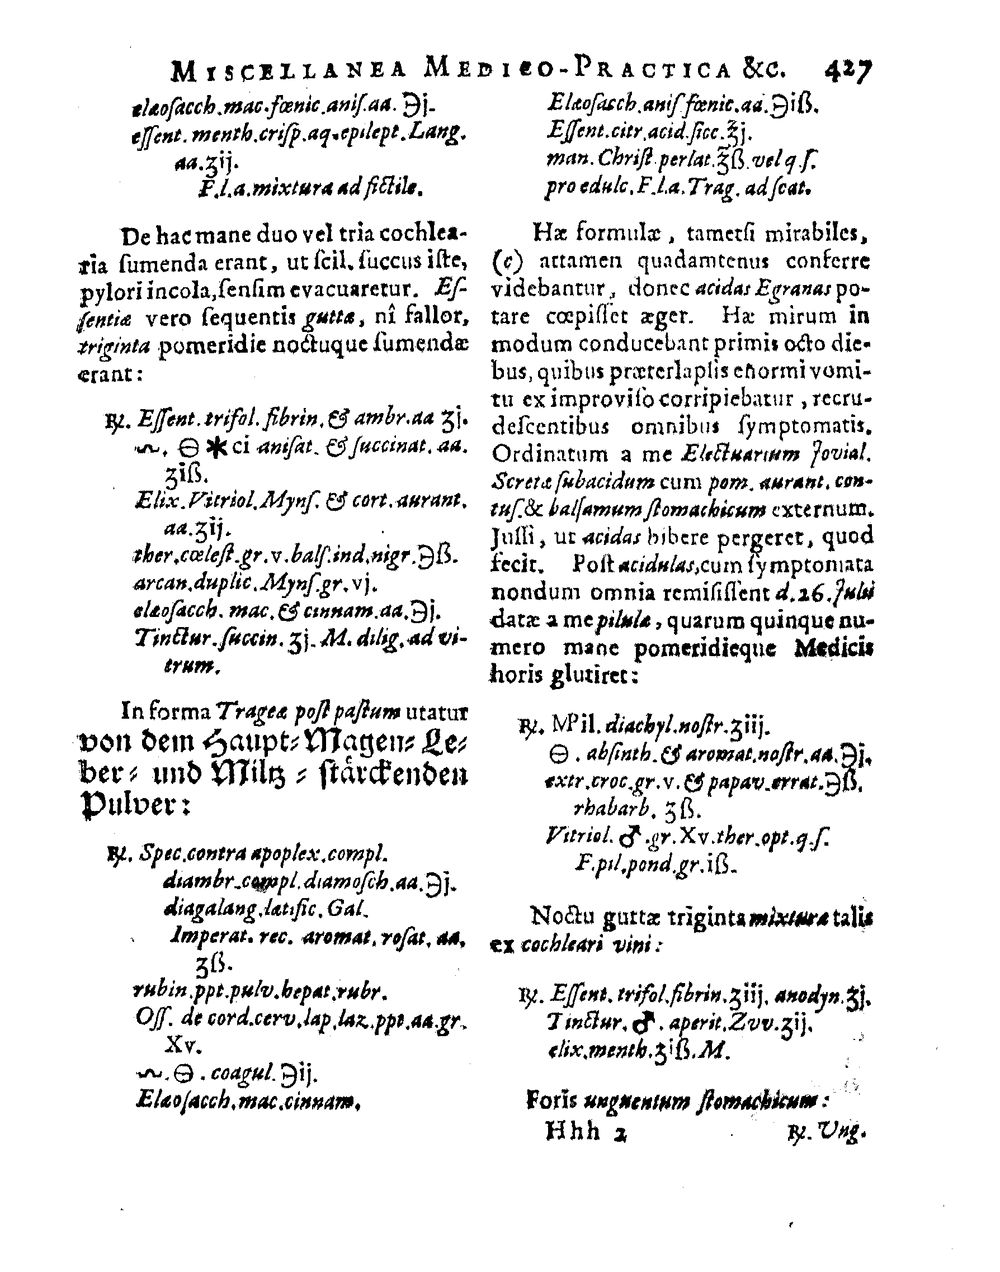 MISCELLANEA MEDICO-PRACTICA &c. 427
elæoſacch.mac.fœnic.aniſ.aa.℈j.
eſſent. menth.criſp.aq.epilept.Lang.
aa.ʒij.
F.l.a.mixtura ad fictile.
De hac mane duo vel tria cochlea-
ria ſumenda erant, ut ſcil. ſuccus iſte,
pylori incola,ſenſim evacuaretur. Eſ-
ſentiæ vero ſequentis guttæ, nî fallor,
triginta pomeridie noctuque ſumendæ
erant:
℞. Eſſent.trifol.fibrin.& ambr.aa ʒj.
🜖. 🜔 ✱ci aniſat. & ſuccinat. aa.
ʒiß.
Elix.Vitriol.Mynſ.& cort.aurant.
aa.ʒij.
ther.cœleſt.gr.v.balſ.ind.nigr.℈ß.
arcan.duplic.Mynſ.gr.vj.
elæoſacch. mac.& cinnam.aa.℈j.
Tinctur.ſuccin. ʒj. M. dilig. ad vi-
trum.
In forma Trageæ poſt paſtum utatur
von dem Haupt⸗Magen⸗ Le⸗
ber⸗ und Miltz ⸗ ſtårckenden
Pulver:
℞. Spec.contra apoplex.compl.
diambr.compl.diamoſch.aa.℈j.
diagalang.lætific.Gal.
Imperat. rec. aromat. roſat. aa.
ʒß.
rubin.ppt.pulv.hepat.rubr.
Oſſ. de cord.cerv.lap.laz.ppt.aa.gr.
Xv.
🜖.🜔. coagul.℈ij.
Elæoſacch.mac.cinnam.
Elæoſacch.aniſ fœnic.aa.℈iß.
Eſſent.citr.acid.ſicc.℥j.
man. Chriſt perlat.℥ß.vel q.ſ.
pro edulc.F.l.a.Trag. ad ſcat.
Hæ formulæ, tametſi mirabiles,
(c) attamen quadamtenus conferre
videbantur, donec acidas Egranas po-
tare cœpiſſet æger. Hæ mirum in
modum conducebant primis octo die-
bus, quibus præterlapſis enormi vomi-
tu ex improviſo corripiebatur, recru-
deſcentibus omnibus ſymptomatis.
Ordinatum a me Electuarium Jovial.
Scretæ ſubacidum cum pom. aurant. con-
tuſ.& balſamum ſtomachicum externum.
Juſſi, ut acidas bibere pergeret, quod
fecit. Poſt acidulas,cum ſymptomata
nondum omnia remiſiſſent d.26.Julii
datæ a me pilulæ, quarum quinque nu-
mero mane pomeridieque Medicis
horis glutiret:
℞. MPil.diachyl.noſtr.ʒiij.
🜔. abſinth.& aromat.noſtr.aa.℈j.
extr.croc.gr.v.& papav.errat.℈ß.
rhabarb. ʒß.
Vitriol.♂.gr.Xv.ther.opt.q.ſ.
F.pil.pond.gr.iß.
Noctu guttæ triginta mixturæ talis
ex cochleari vini:
℞. Eſſent. trifol.fibrin.ʒiij. anodyn.ʒj.
Tinctur.♂. aperit.Zvv.ʒij.
elix.menth.ʒiß.M.
Foris unguentum ſtomachicum:
Hhh 2 ℞. Ung.